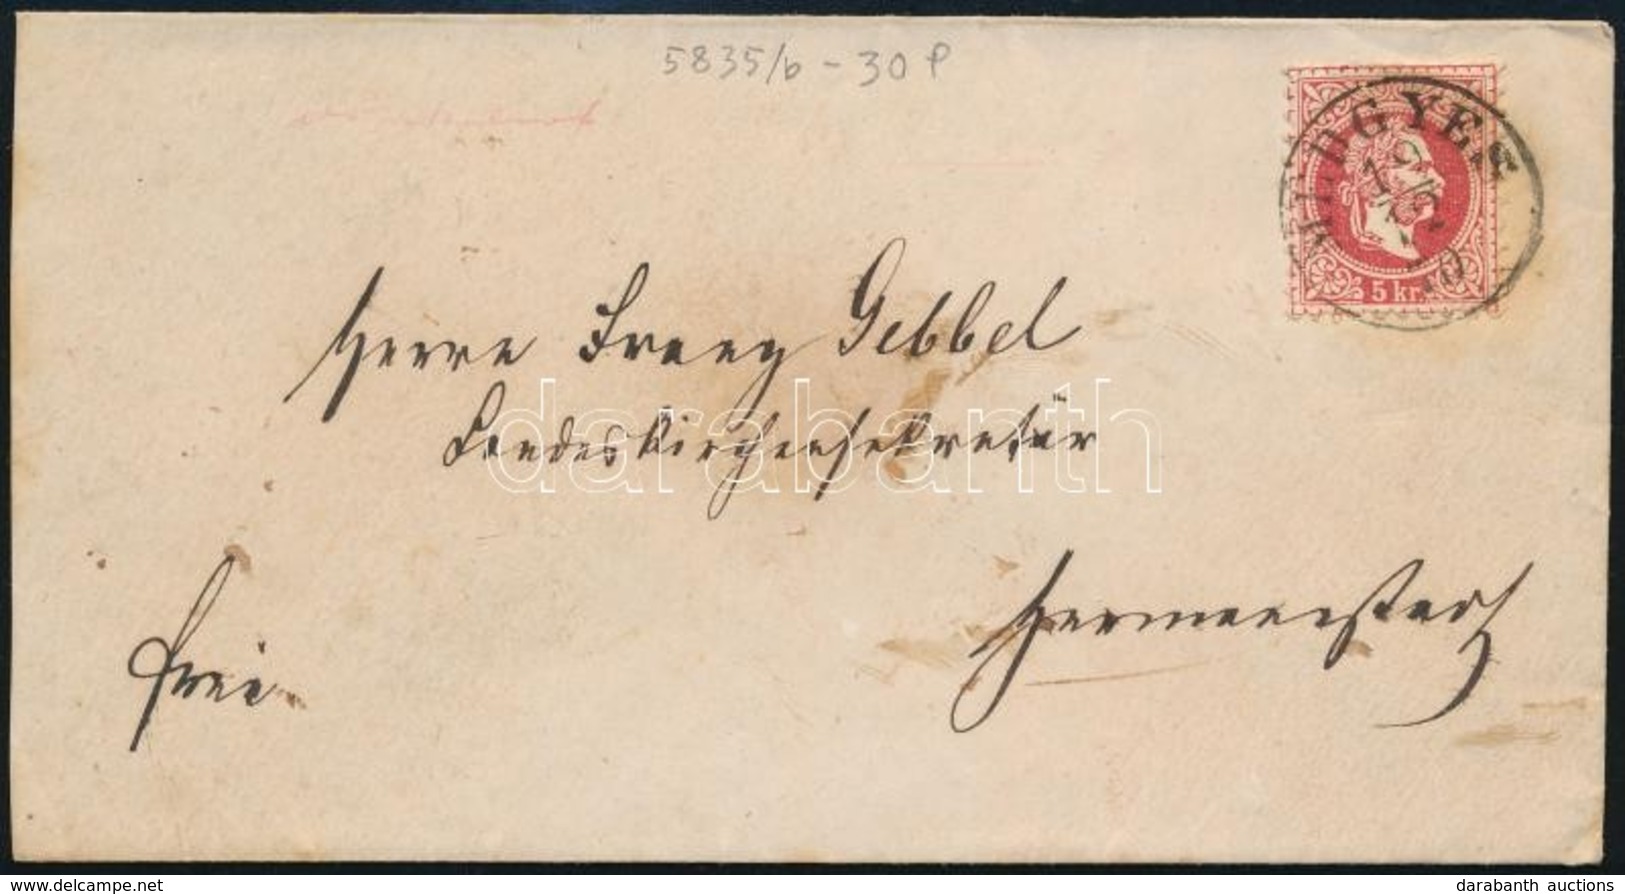 5835/b - 30 P
MEDGYES
12/12
70
5 kr.
Herrn Franz Gebbel
Landeskirchensekretär
Hermannstadt
frei
darabanth
delcampe.net
darabanth auctions